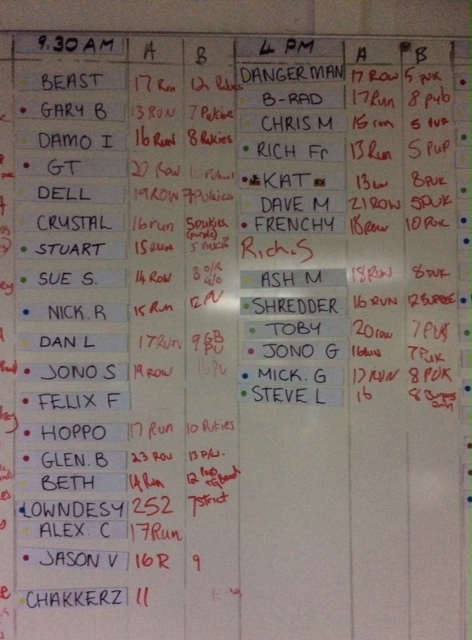 9.30 AM A B
BEAST 17 Run 12
GARY B 13 RUN 7 Pukies
DAMO I 16 RUN 8 Pukies
GT 20 Row 10
DELL 19 ROW 7 Pukies
CRYSTAL 16 run 5 pukies
(purple)
STUART 15 RUN 5
SUE S. 14 ROW 8
NICK. R 15 Run 12 PU
DAN L 17 RUN 9 GB
PU
JONO S 19 ROW
FELIX F
HOPPO 17 Run 10 Pukies
GLEN. B 23 ROW 13
BETH Run 12
LOWNDESY 252 7 strict
ALEX. C 17 Run
JASON V 16 R 9
CHAKKERZ 11
4 PM A B
DANGERMAN 17 ROW 5 PUK
B-RAD 17 Run 8 pub
CHRIS M 15 run 5 PUK
RICH Fr 13 Run 5 PUP
KAT 13 8 PUK
DAVE M 21 ROW 5 PUK
FRENCHY 18 ROW 10 PUK
Rich.S
ASH M 18 ROW 8 PUK
SHREDDER 16 RUN 12
TOBY 20 row 7 PUK
JONO G 16 7 PUK
MICK. G 17 RUN 8 PUK
STEVE L 16 8